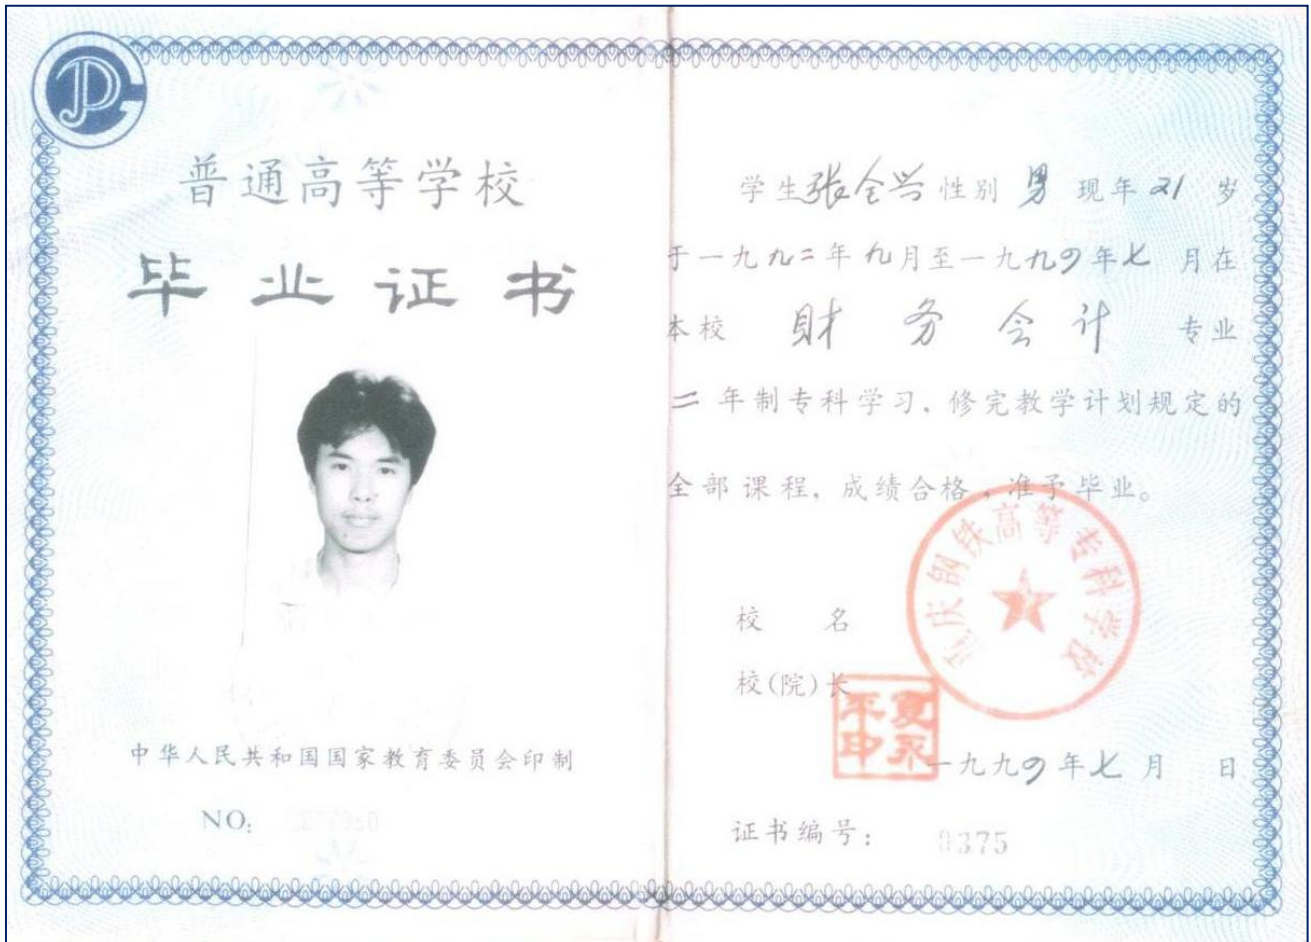 普通高等学校
毕业证书
中华人民共和国国家教育委员会印制
NO:
学生张全兴性别 男 现年 21 岁
于一九九二年九月至一九九四年七 月在
本校 财 务 会 计 专业
二 年制专科学习、修完教学计划规定的
全部课程,成绩合格,准予毕业。
重庆钢铁高等专科学校
校 名
校(院)长
夏永平印
一九九四年七月 日
证书编号: 0375